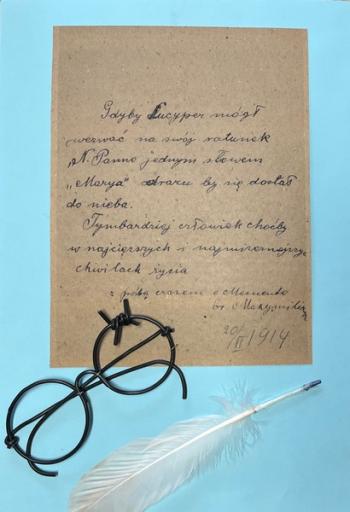 Gdyby Lucyper mógł
wezwać na swój ratunek
N. Panno jednym słowem
„Marya” odrazu by się dostał
do nieba.
Tymbardziej człowiek choćby
w najcięższych i najmizerniejszych
chwilach życia
z prośbą czasem o Memento
br. Maksymilian
20/VI 1914